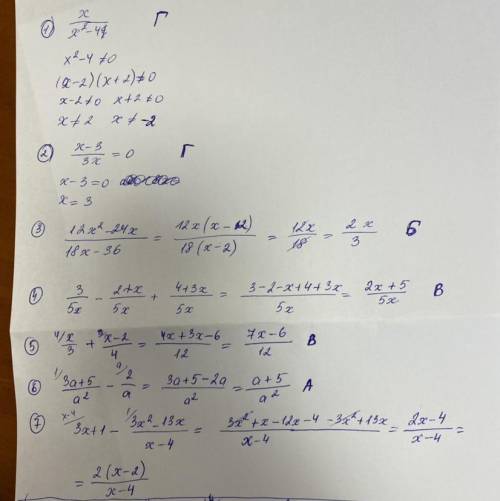 1) x/(x²-4) Г
x²-4≠0
(x-2)(x+2)≠0
x-2≠0 x+2≠0
x≠2 x≠-2
2) (x-3)/3x = 0 Г
x-3=0
x=3
3) (12x²-24x)/(18x-36) = 12x(x-2)/18(x-2) = 12x/18 = 2x/3 Б
4) 3/5x - (2+x)/5x + (4+3x)/5x = (3-2-x+4+3x)/5x = (2x+5)/5x В
5) 4/ x/3 + 3/ (x-2)/4 = (4x+3x-6)/12 = (7x-6)/12 В
6) 1/ (3a+5)/a² - a/ 2/a = (3a+5-2a)/a² = (a+5)/a² А
7) x-4/ 3x+1 - 1/ (3x²-13x)/(x-4) = (3x²+x-12x-4-3x²+13x)/(x-4) = (2x-4)/(x-4) =
= 2(x-2)/(x-4)